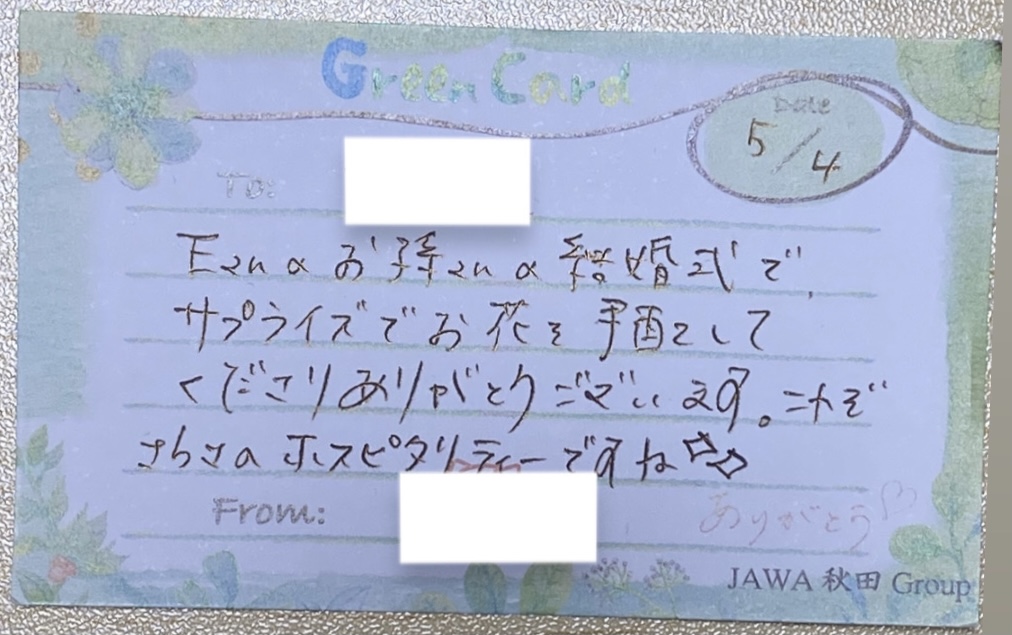 Green Card
Date
5/4
To:
さんのお孫さんの結婚式で、
サプライズでお花を手配をして
くださりありがとうございます。これぞ
さらさのホスピタリティーですね☆☆
From:
ありがとう♡
JAWA 秋田 Group